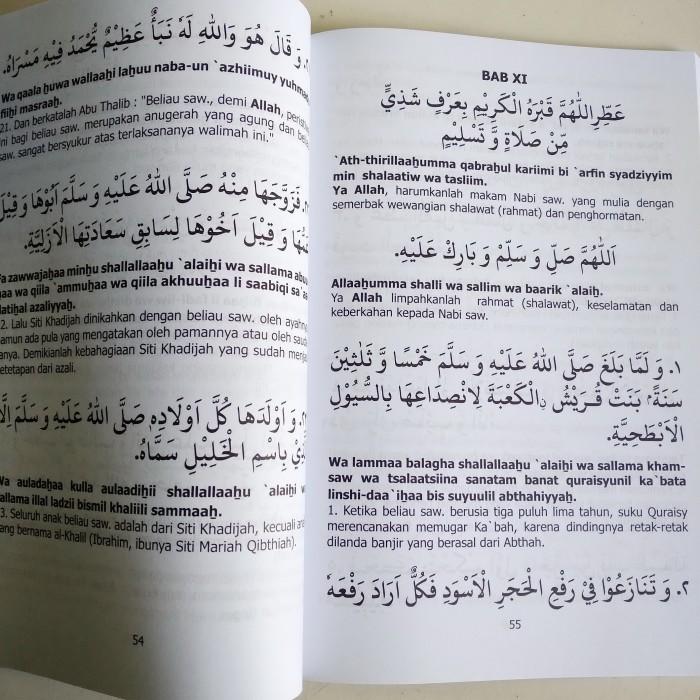 وَقَالَ هُوَ وَاللّٰهِ لَهٗ نَبَأٌ عَظِيْمٌ يُّحْمَدُ فِيْهِ مَسْرَاهُ.
Wa qaala ẖuwa wallaaẖi laẖuu naba-un `azhiimuy yuhma
fiiẖi masraaẖ.
21. Dan berkatalah Abu Thalib : "Beliau saw., demi Allah,
ini bagi beliau saw. merupakan anugerah yang agung dan
saw. sangat bersyukur atas terlaksananya walimah ini."
فَزَوَّجَهَا مِنْهُ صَلَّى اللّٰهُ عَلَيْهِ وَسَلَّمَ اَبُوْهَا وَقِيْلَ
وَقِيْلَ اَخُوْهَا لِسَابِقِ سَعَادَتِهَا الْاَزَلِيَّةِ.
a zawwajaẖaa minẖu shallallaaẖu `alaiẖi wa sallama abuu
ẖaa wa qiila `ammuẖaa wa qiila akhuuẖaa li saabiqi sa`a
datiẖal azaliyyaẖ.
2. Lalu Siti Khadijah dinikahkan dengan beliau saw. oleh ayahn
amun ada pula yang mengatakan oleh pamannya atau oleh saud
anya. Demikianlah kebahagiaan Siti Khadijah yang sudah menja
etetapan dari azali.
وَاَوْلَدَهَا كُلَّ اَوْلَادِهٖ صَلَّى اللّٰهُ عَلَيْهِ وَسَلَّمَ اِلَّا
بِاسْمِ الْخَلِيْلِ سَمَّاهُ.
Wa auladaẖaa kulla aulaadiẖii shallallaaẖu `alaiẖi w
allama illal ladzii bismil khaliili sammaaẖ.
3. Seluruh anak beliau saw. adalah dari Siti Khadijah, kecuali
ang bernama al-Khalil (Ibrahim, ibunya Siti Mariah Qibthiah).
54
BAB XI
عَطِّرِاللّٰهُمَّ قَبْرَهُ الْكَرِيْمَ بِعَرْفٍ شَذِيٍّ
مِّنْ صَلَاةٍ وَّ تَسْلِيْمٍ
`Ath-thirillaaẖumma qabraẖul kariimi bi `arfin syadziyyim
min shalaatiw wa tasliim.
Ya Allah, harumkanlah makam Nabi saw. yang mulia dengan
semerbak wewangian shalawat (rahmat) dan penghormatan.
اَللّٰهُمَّ صَلِّ وَ سَلِّمْ وَ بَارِكْ عَلَيْهِ.
Allaaẖumma shalli wa sallim wa baarik `alaiẖ.
Ya Allah limpahkanlah rahmat (shalawat), keselamatan dan
keberkahan kepada Nabi saw.
١. وَ لَمَّا بَلَغَ صَلَّى اللّٰهُ عَلَيْهِ وَ سَلَّمَ خَمْسًا وَّ ثَلٰثِيْنَ
سَنَةً ۢ بَنَتْ قُرَيْشُ ࣙالْكَعْبَةَ لِانْصِدَاعِهَا بِالسُّيُوْلِ
الْاَبْطَحِيَّةِ.
Wa lammaa balagha shallallaaẖu `alaiẖi wa sallama kham-
saw wa tsalaatsiina sanatam banat quraisyunil ka`bata
linshi-daa`iẖaa bis suyuulil abthahiyyaẖ.
1. Ketika beliau saw. berusia tiga puluh lima tahun, suku Quraisy
merencanakan memugar Ka`bah, karena dindingnya retak-retak
dilanda banjir yang berasal dari Abthah.
٢. وَ تَنَازَعُوْا فِيْ رَفْعِ الْحَجَرِ الْاَسْوَدِ فَكُلٌّ اَرَادَ رَفْعَهٗ
55